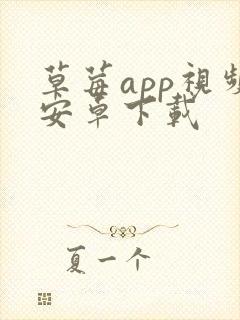 草莓app視頻
安卓下載
夏一个